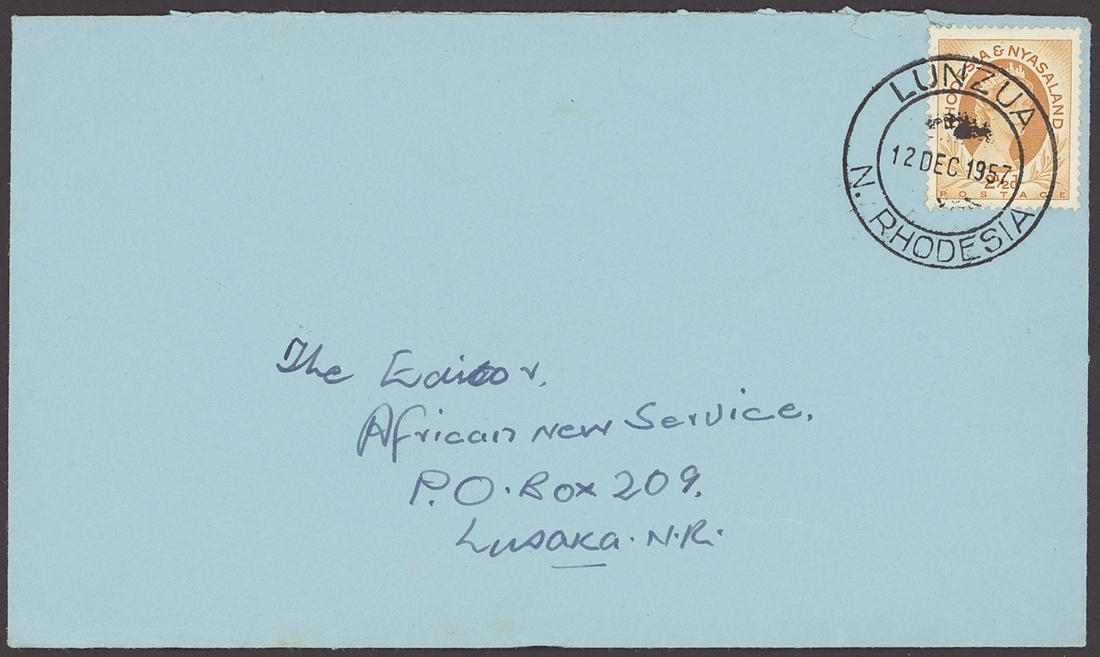 RHODESIA & NYASALAND
2½d
POSTAGE
LUNZUA
12 DEC 1957
N. RHODESIA
The Editor,
African New Service,
P.O. Box 209,
Lusaka. N.R.